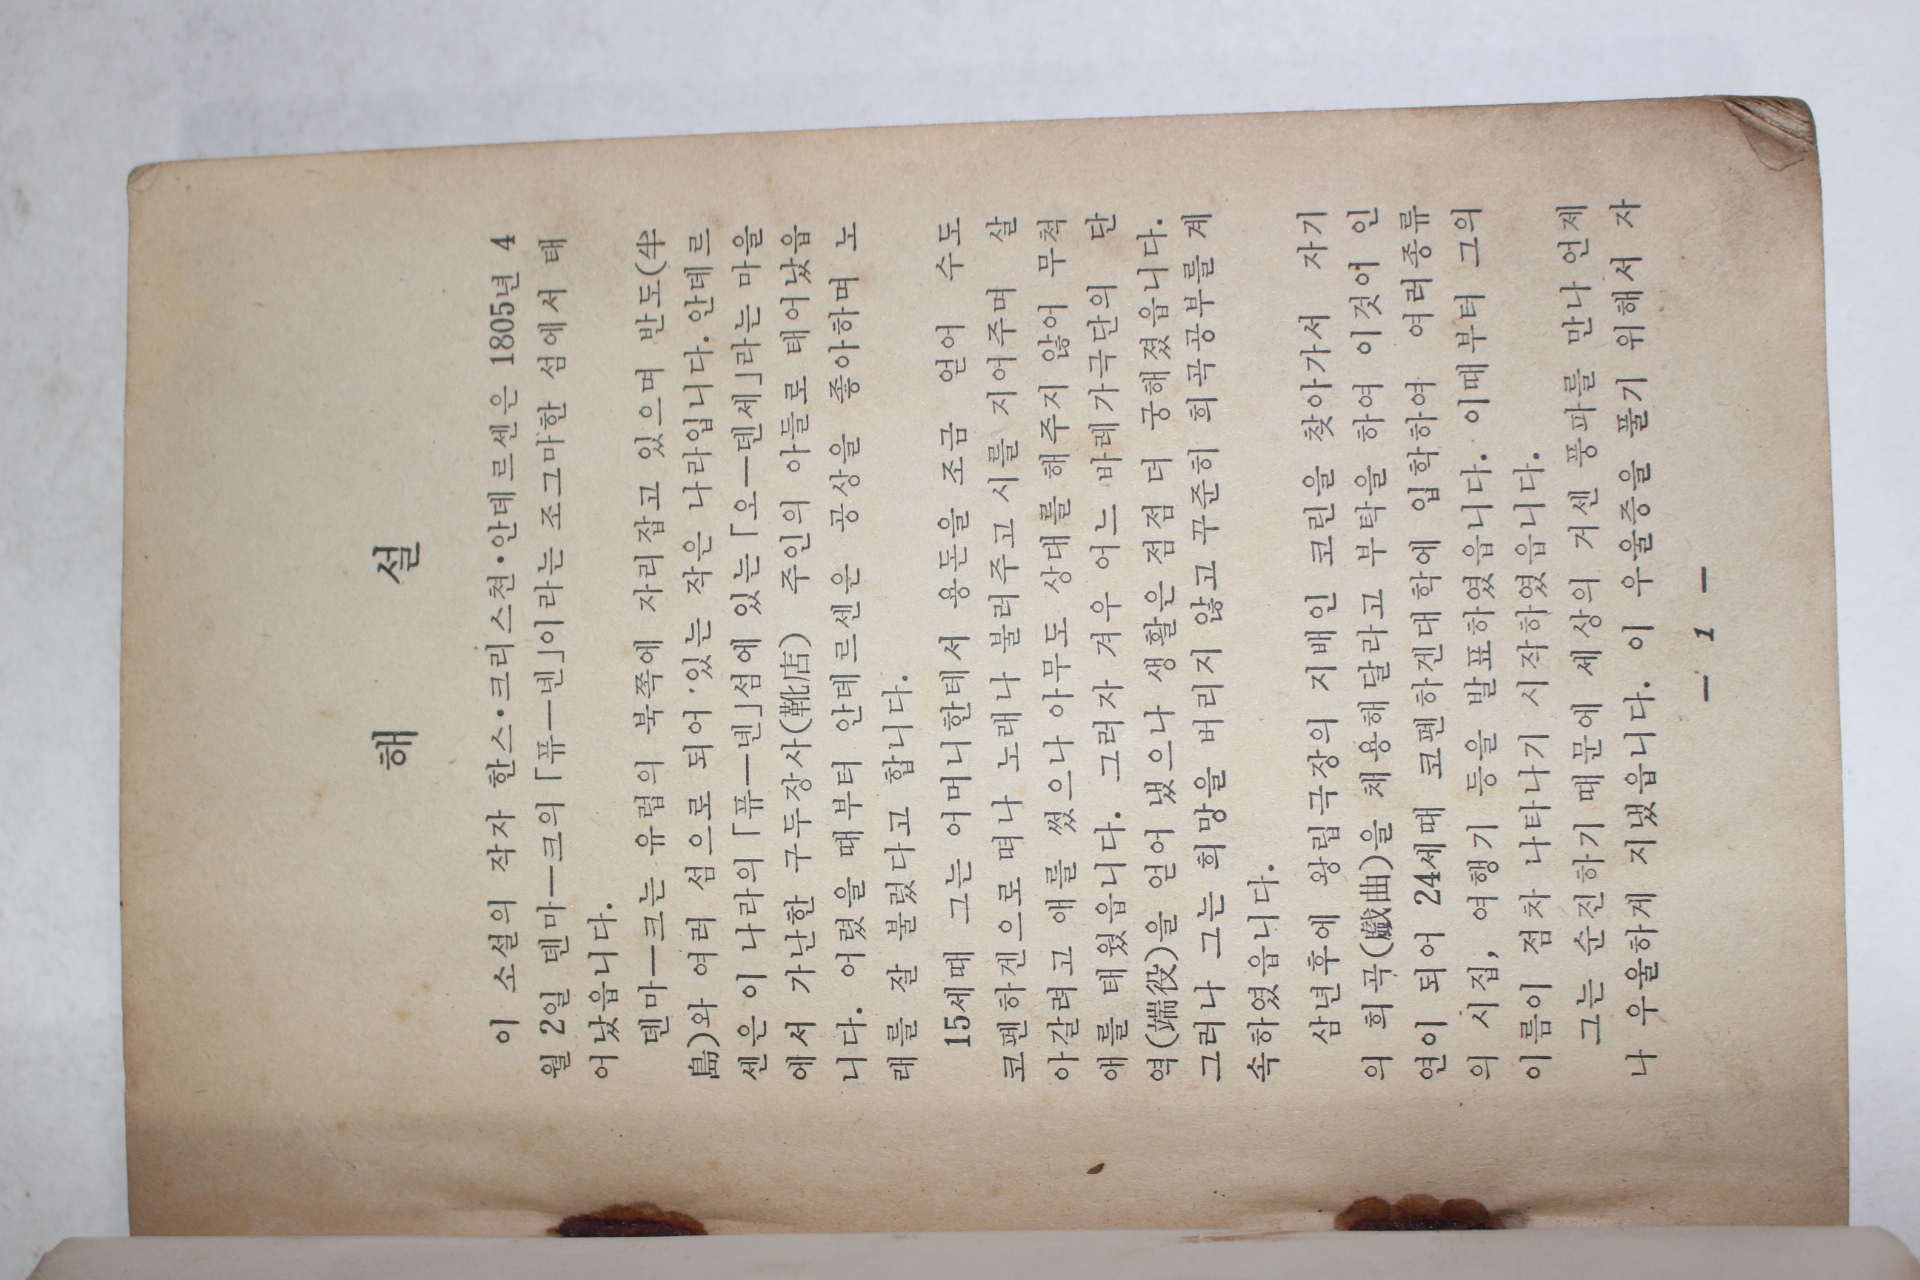 해 설
이 소설의 작자 한스·크리스천·안데르센은 1805년 4
월 2일 덴마—크의 「퓨—넨」이라는 조그마한 섬에서 태
어났읍니다.
덴마—크는 유럽의 북쪽에 자리잡고 있으며 반도(半
島)와 여러 섬으로 되어 있는 작은 나라입니다. 안데르
센은 이 나라의 「퓨—넨」섬에 있는 「오—덴세」라는 마을
에서 가난한 구두장사(靴店) 주인의 아들로 태어났읍
니다. 어렸을 때부터 안데르센은 공상을 좋아하며 노
래를 잘 불렀다고 합니다.
15세때 그는 어머니한테서 용돈을 조금 얻어 수도
코펜하겐으로 떠나 노래나 불러주고 시를 지어주며 살
아갈려고 애를 썼으나 아무도 상대를 해주지 않어 무척
애를 태웠읍니다. 그러자 겨우 어느 바레가극단의 단
역(端役)을 얻어 냈으나 생활은 점점 더 궁해졌읍니다.
그러나 그는 희망을 버리지 않고 꾸준히 희곡공부를 계
속하였읍니다.
삼년후에 왕립극장의 지배인 코린을 찾아가서 자기
의 희곡(戱曲)을 채용해달라고 부탁을 하여 이것이 인
연이 되어 24세때 코펜하겐대학에 입학하여 여러종류
의 시집, 여행기 등을 발표하였읍니다. 이때부터 그의
이름이 점차 나타나기 시작하였읍니다.
그는 순진하기 때문에 세상의 거센 풍파를 만나 언제
나 우울하게 지냈읍니다. 이 우울증을 풀기 위해서 자
— 1 —